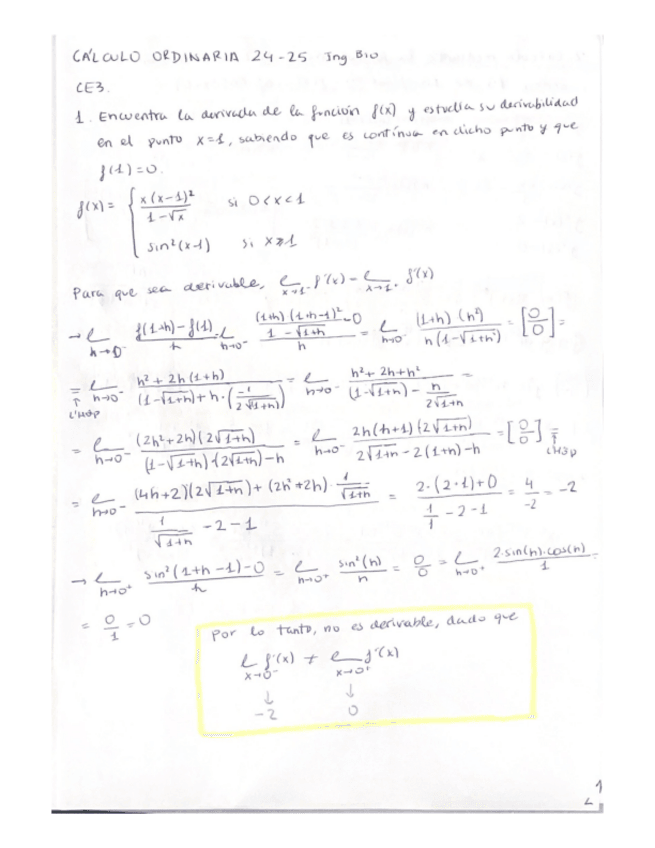 CÁLCULO ORDINARIA 24-25 Ing Bio
CE3.
1. Encuentra la derivada de la función f(x) y estudia su derivabilidad
en el punto x=1, sabiendo que es continua en dicho punto y que
f(1)=0.
f(x) = { x(x-1)² / 1-√x si 0<x<1
sin²(x-1) si x≥1
Para que sea derivable, L x→1⁻ f'(x) = L x→1⁺ f'(x)
→ L h→0⁻ f(1+h)-f(1) / h = L h→0⁻ ((1+h)(1+h-1)² / 1-√1+h - 0) / h = L h→0⁻ (1+h)(h²) / h(1-√1+h) = [0/0] =
= ↑ L'Hôp L h→0⁻ h²+2h(1+h) / (1-√1+h)+h·(-1 / 2√1+h) = L h→0⁻ h²+2h+h² / (1-√1+h) - h / 2√1+h =
= L h→0⁻ (2h²+2h)(2√1+h) / (1-√1+h)·(2√1+h)-h = L h→0⁻ 2h(h+1)(2√1+h) / 2√1+h-2(1+h)-h = [0/0] = ↑ L'Hôp
= L h→0⁻ (4h+2)(2√1+h)+(2h²+2h)·1/√1+h / 1/√1+h -2-1 = 2·(2·1)+0 / 1/1 -2-1 = 4/-2 = -2
→ L h→0⁺ sin²(1+h-1)-0 / h = L h→0⁺ sin²(h) / h = 0/0 = L h→0⁺ 2·sin(h)·cos(h) / 1 =
= 0/1 = 0
Por lo tanto, no es derivable, dado que
L x→0⁻ f'(x) ≠ L x→0⁺ f'(x)
↓ ↓
-2 0
1